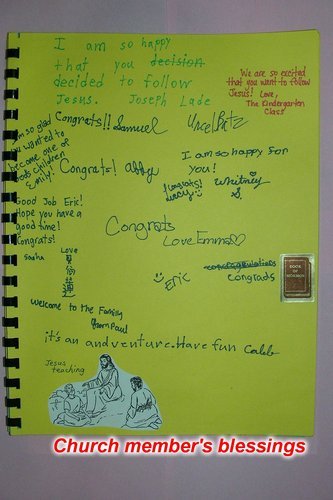 I am so happy
that you decision
decided to follow
Jesus. Joseph Lade
We are so excited
that you want to follow
Jesus! Love,
The Kindergarten
Class
Congrats!! Samuel
I'm so glad
you wanted to
become one of
Gods children
Emily!
Congrats! Abby
I am so happy for
you!
Congrats!
Lucy
Whitney
Good Job Eric!
Hope you have a
good time!
Congrats!
Congrats
Love Emma
Love
Eric
congratulations
congrads
BOOK
OF
MORMON
Welcome to the Family
from Paul
it's an andventure. Have fun Caleb
Jesus
teaching
Church member's blessings